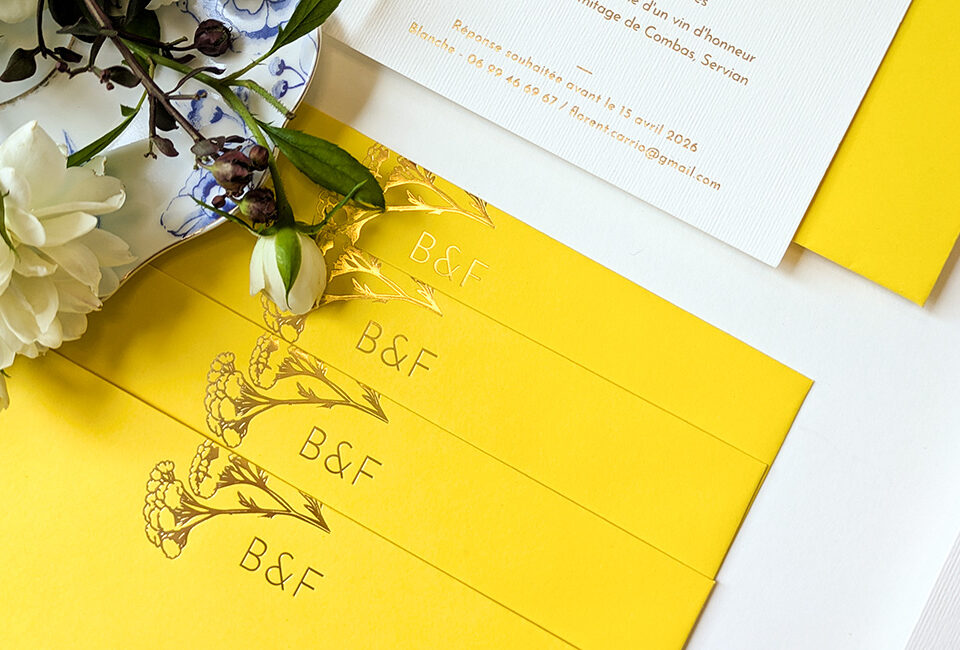 d'un vin d'honneur
de Combas, Servian
—
Réponse souhaitée avant le 15 avril 2026
Blanche - 06 99 46 69 67 / florent.carrio@gmail.com
B&F
B&F
B&F
B&F